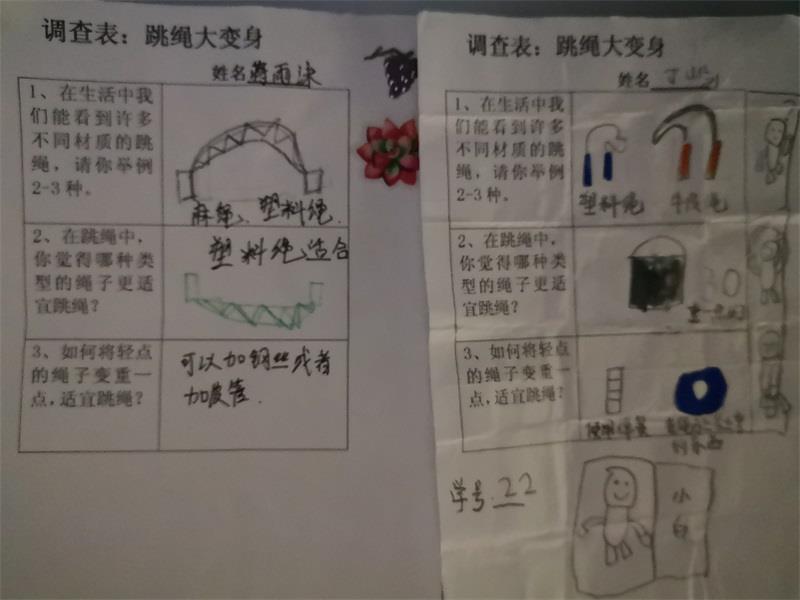 调查表：跳绳大变身
姓名
1、在生活中我
们能看到许多
不同材质的跳
绳，请你举例
2-3种。
麻绳、塑料绳.
2、在跳绳中，
你觉得哪种类
型的绳子更适
宜跳绳？
塑料绳适合
3、如何将轻点
的绳子变重一
点，适宜跳绳？
可以加钢丝或者
加皮管.
调查表：跳绳大变身
姓名
1、在生活中我
们能看到许多
不同材质的跳
绳，请你举例
2-3种。
塑料绳
2、在跳绳中，
你觉得哪种类
型的绳子更适
宜跳绳？
3、如何将轻点
的绳子变重一
点，适宜跳绳？
学号 22
小
白